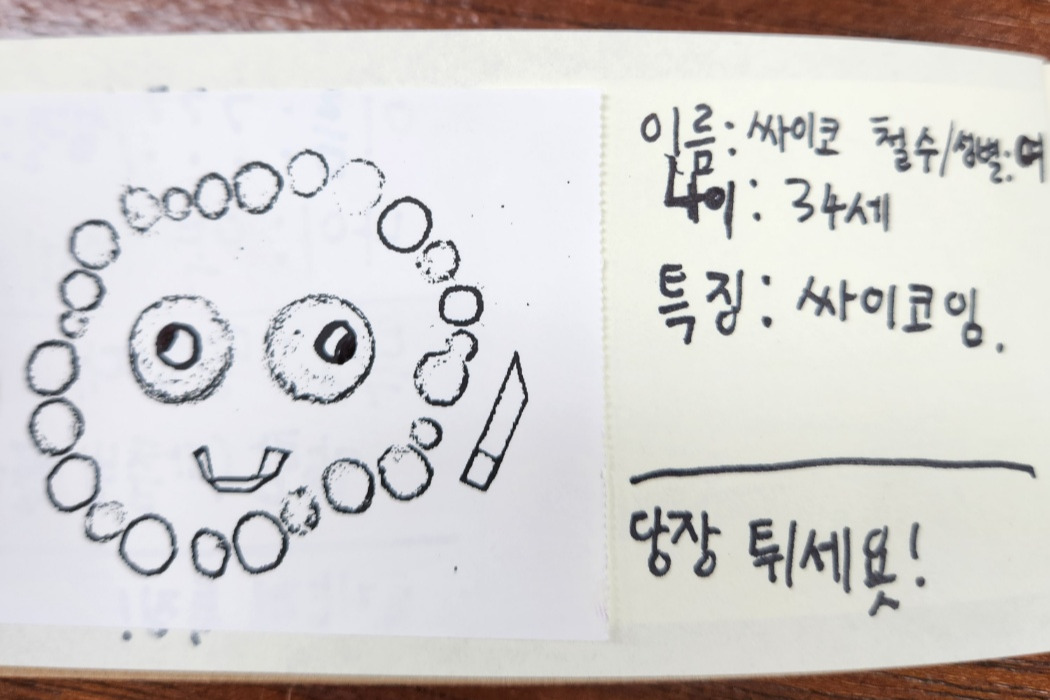 이름: 싸이코 철수/성별: 여
나이: 34세
특징: 싸이코임.
당장 튀세욧!